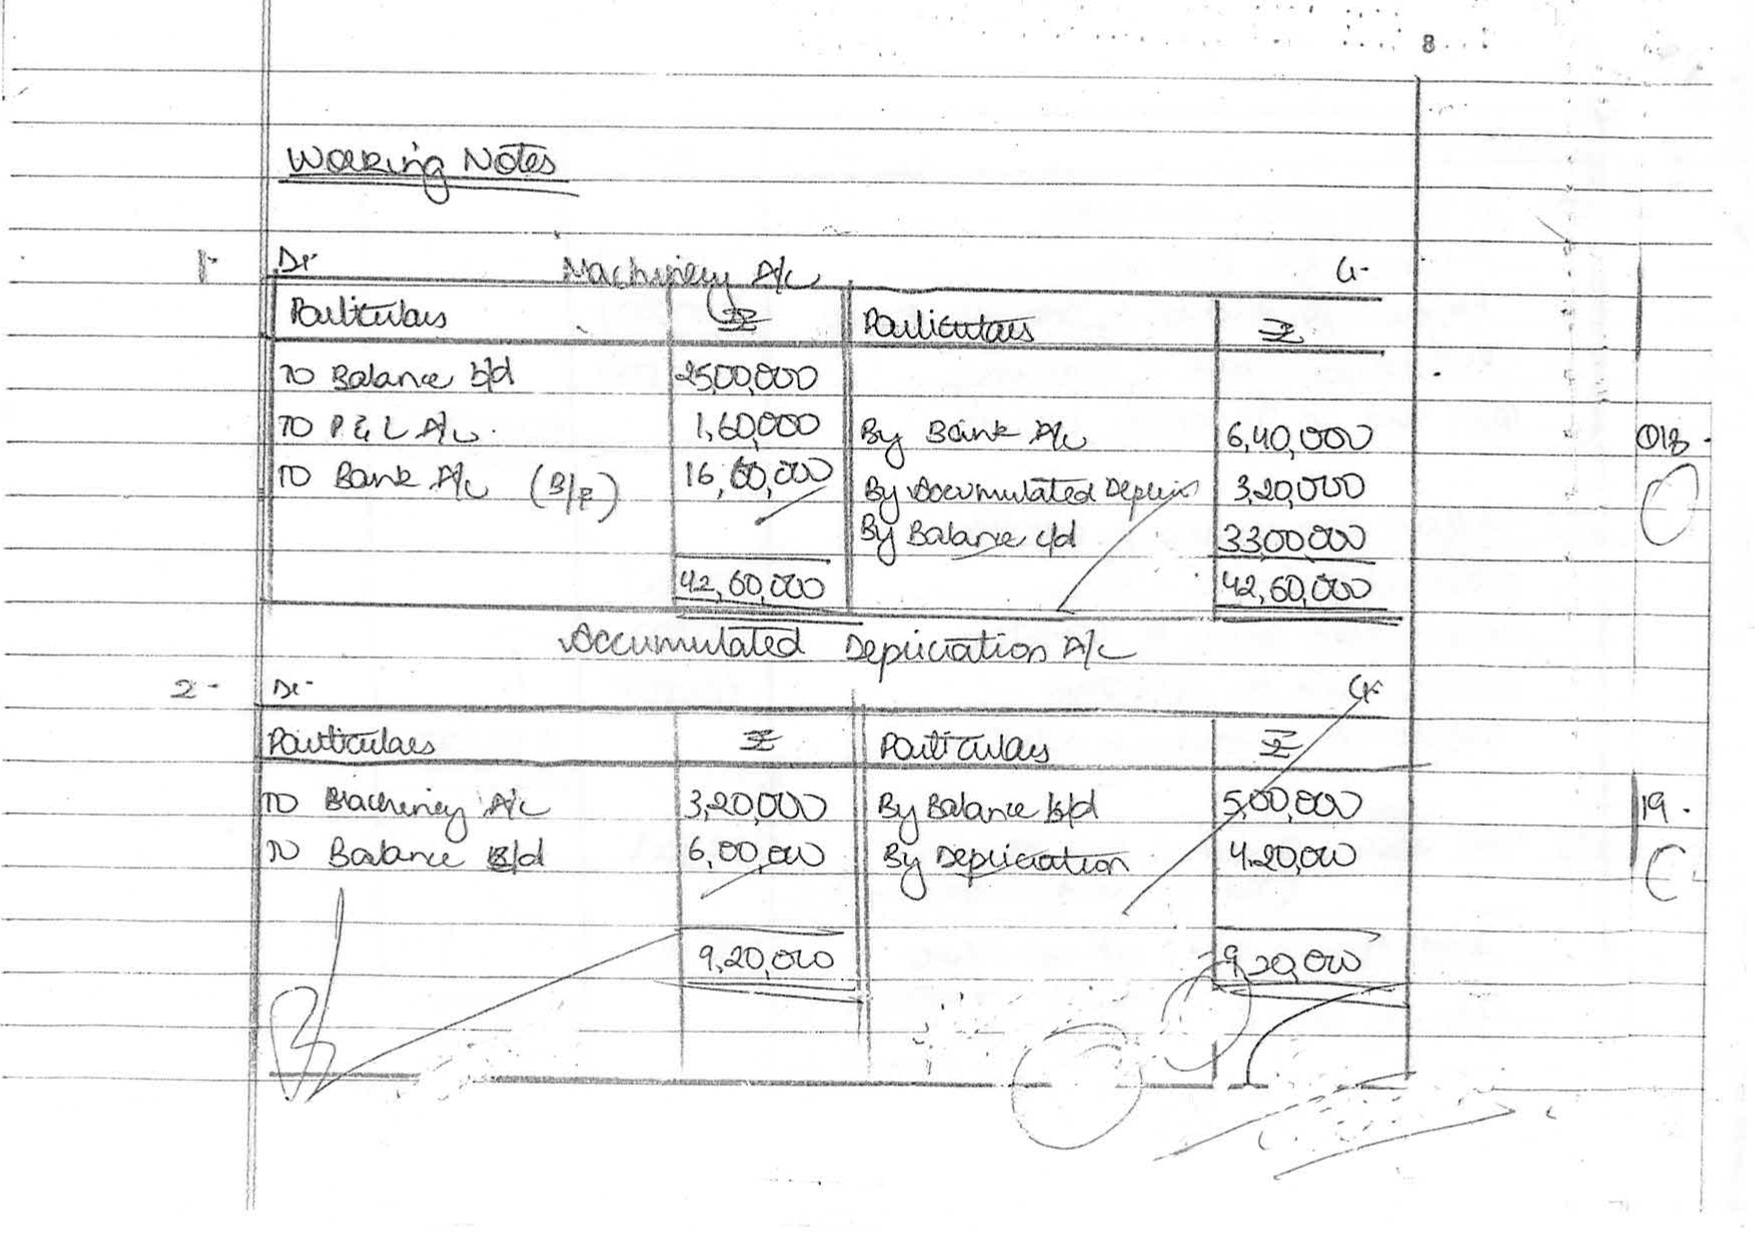 8
Working Notes
1. Dr. Machinery A/c Cr.
Particulars ₹ Particulars ₹
TO Balance b/d 2500,000
TO P & L A/c. 1,60,000 By Bank A/c 6,40,000
TO Bank A/c (B/F) 16,00,000 By Accumulated Deprn 3,20,000
By Balance c/d 3300000
42,60,000 42,60,000
Accumulated Depriciation A/c
2. Dr. Cr.
Particulars ₹ Particulars ₹
TO Machinery A/c 3,20,000 By Balance b/d 5,00,000
TO Balance /d 6,00,000 By Depriciation 4,20,000
9,20,000 9,20,000
19.